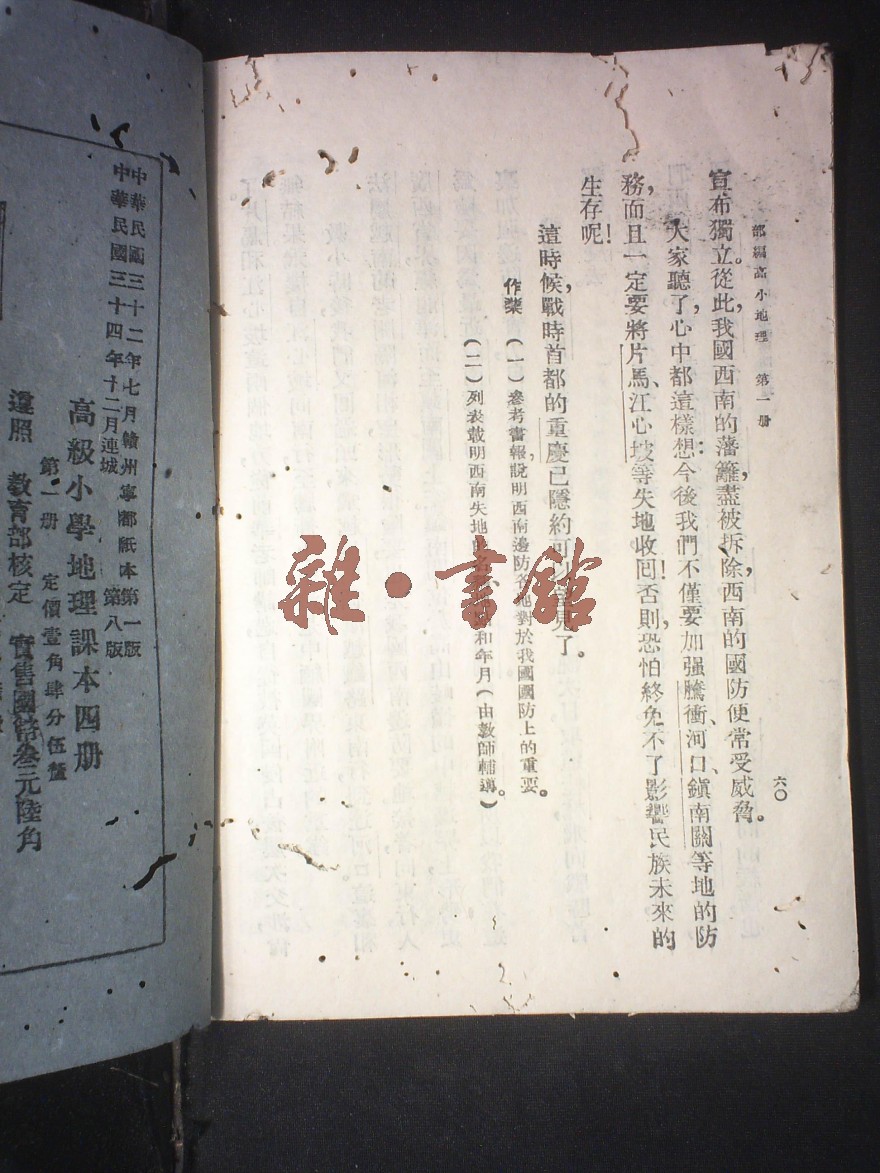 部編高小地理 第一册
六〇
宣布獨立。從此,我國西南的藩籬盡被拆除,西南的國防便常受威脅。
大家聽了,心中都這樣想:今後我們不僅要加强騰衝、河口、鎮南關等地的防
務,而且一定要將片馬、江心坡等失地收回!否則,恐怕終免不了影響民族未來的
生存呢!
這時候,戰時首都的重慶已隱約可以望見了。
作業 (一)參考書報說明西南邊防各地對於我國國防上的重要。
(二)列表載明西南失地 和年月(由教師輔導)。
雜·書館
中華民國三十二年七月贛州寧都紙本第一版
中華民國三十四年十二月連城 第八版
高級小學地理課本四册
第一册 定價壹角肆分伍釐
遵照 教育部核定 實售國幣叁元陸角